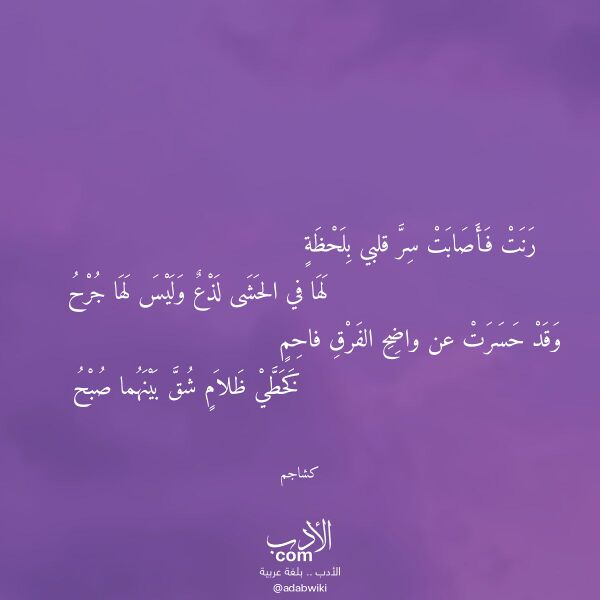 رَنَتْ فَأَصَابَتْ سِرَّ قلبي بِلَحْظَةٍ
لَهَا في الحَشَى لَذْعٌ وَلَيْسَ لَهَا جُرْحُ
وَقَدْ حَسَرَتْ عن واضِحِ الفَرْقِ فاحِمٍ
كَخَطَّيْ ظَلاَمٍ شُقَّ بَيْنَهُما صُبْحُ
كشاجم
الأدب
com
الأدب .. بلغة عربية
@adabwiki